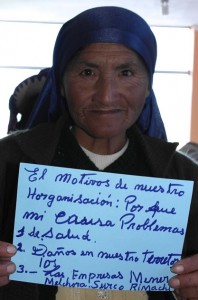 El Motivos de nuestro
Horganisación: Por que
mi Causa Problemas
1 de Salud.
2. Daños en nuestro territo
los
3.- Las Empresas Miner
Melchora Surco Rimachi